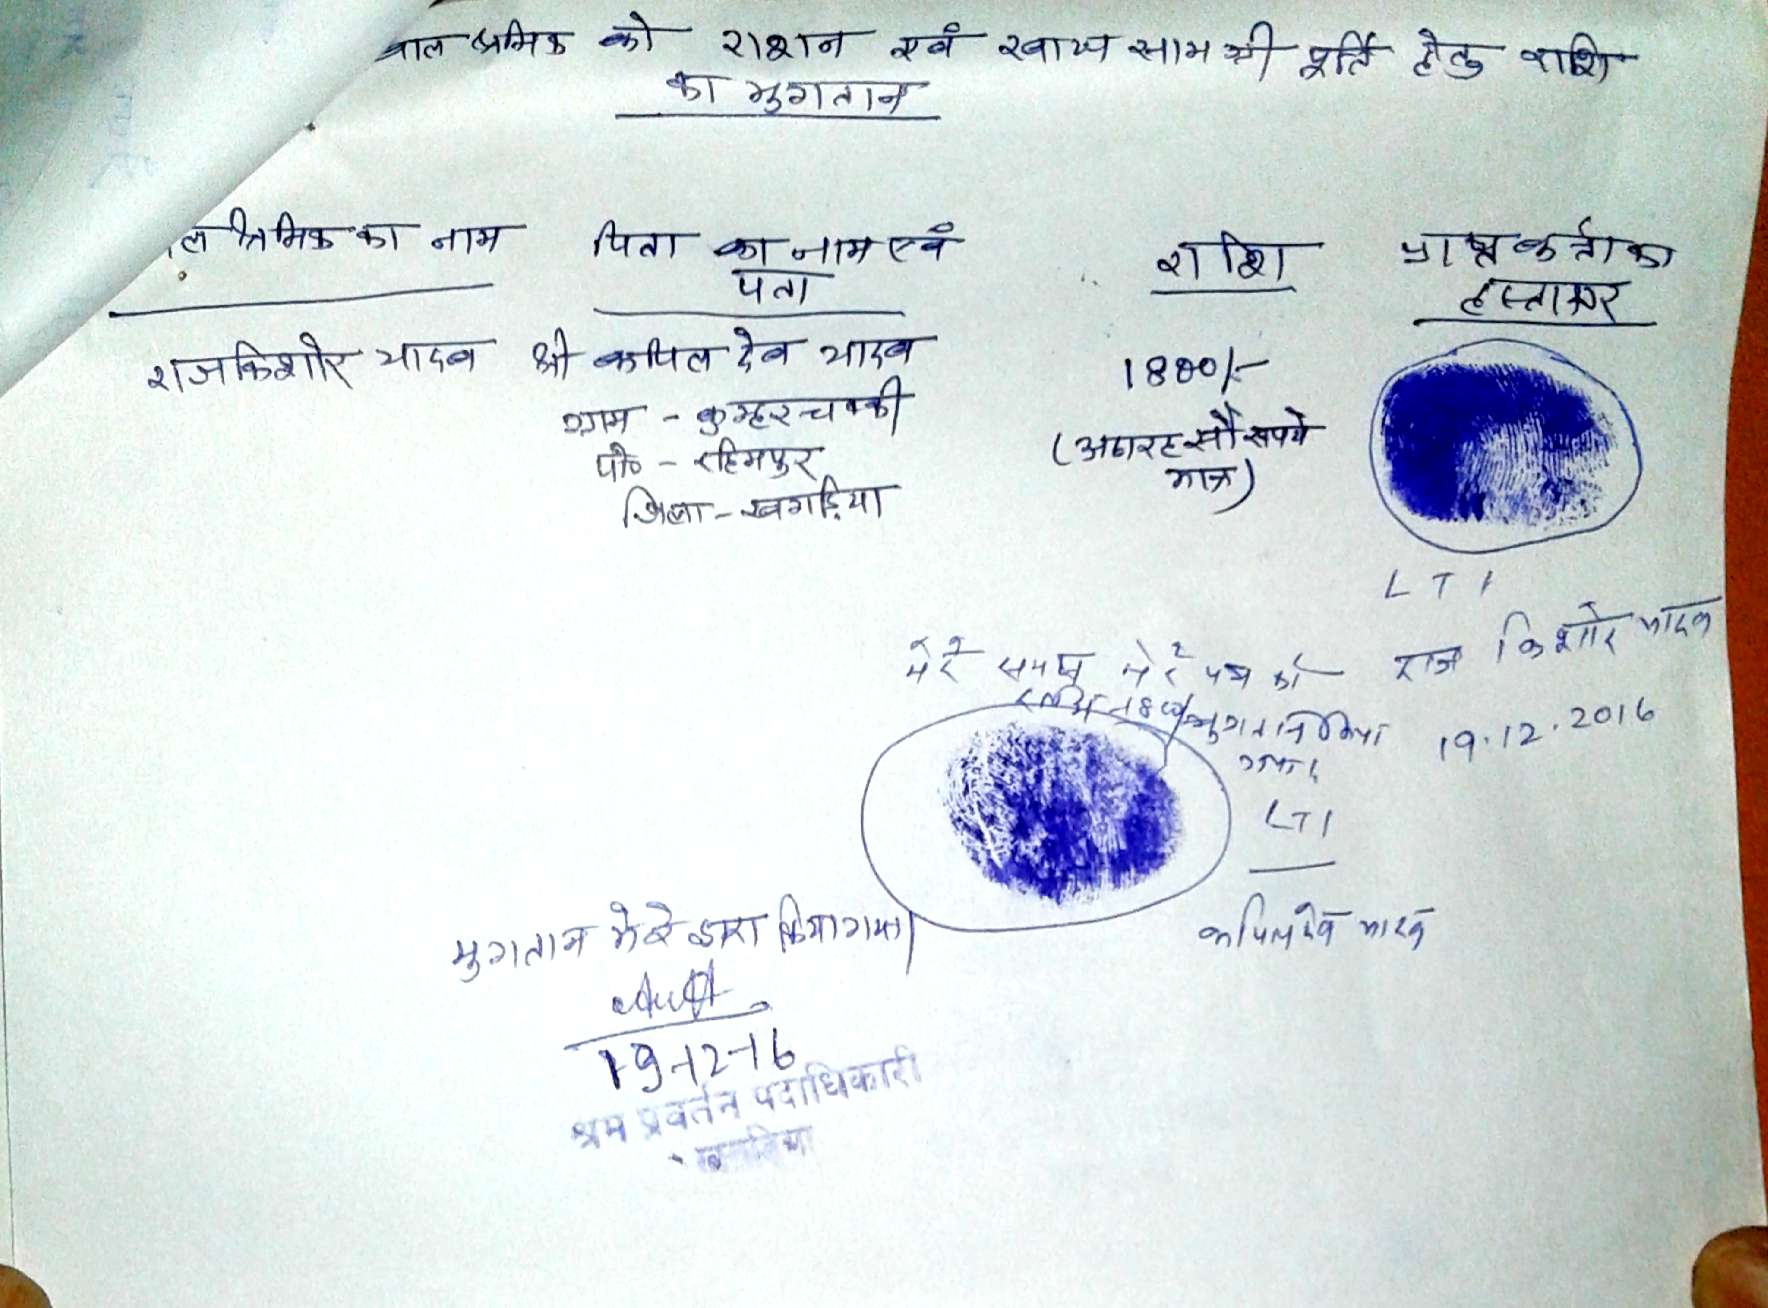 बाल श्रमिक को राशन एवं खाद्य सामग्री पूर्ति हेतु राशि
का भुगतान
ल श्रमिक का नाम पिता का नाम एवं पता राशि प्राप्तकर्ता का हस्ताक्षर
राजकिशोर यादव श्री कपिल देव यादव 1800/-
ग्राम - कुम्हरचक्की
(अठारह सौ रुपये
पो० - रहिमपुर
मात्र)
जिला - खगड़िया
LTI
राज किशोर यादव
मेरे समक्ष मेरे पुत्र को
राशि 1800/ भुगतान किया
गया।
19.12.2016
LTI
कपिलदेव यादव
भुगतान मेरे द्वारा किया गया।
19-12-16
श्रम प्रवर्तन पदाधिकारी
खगड़िया